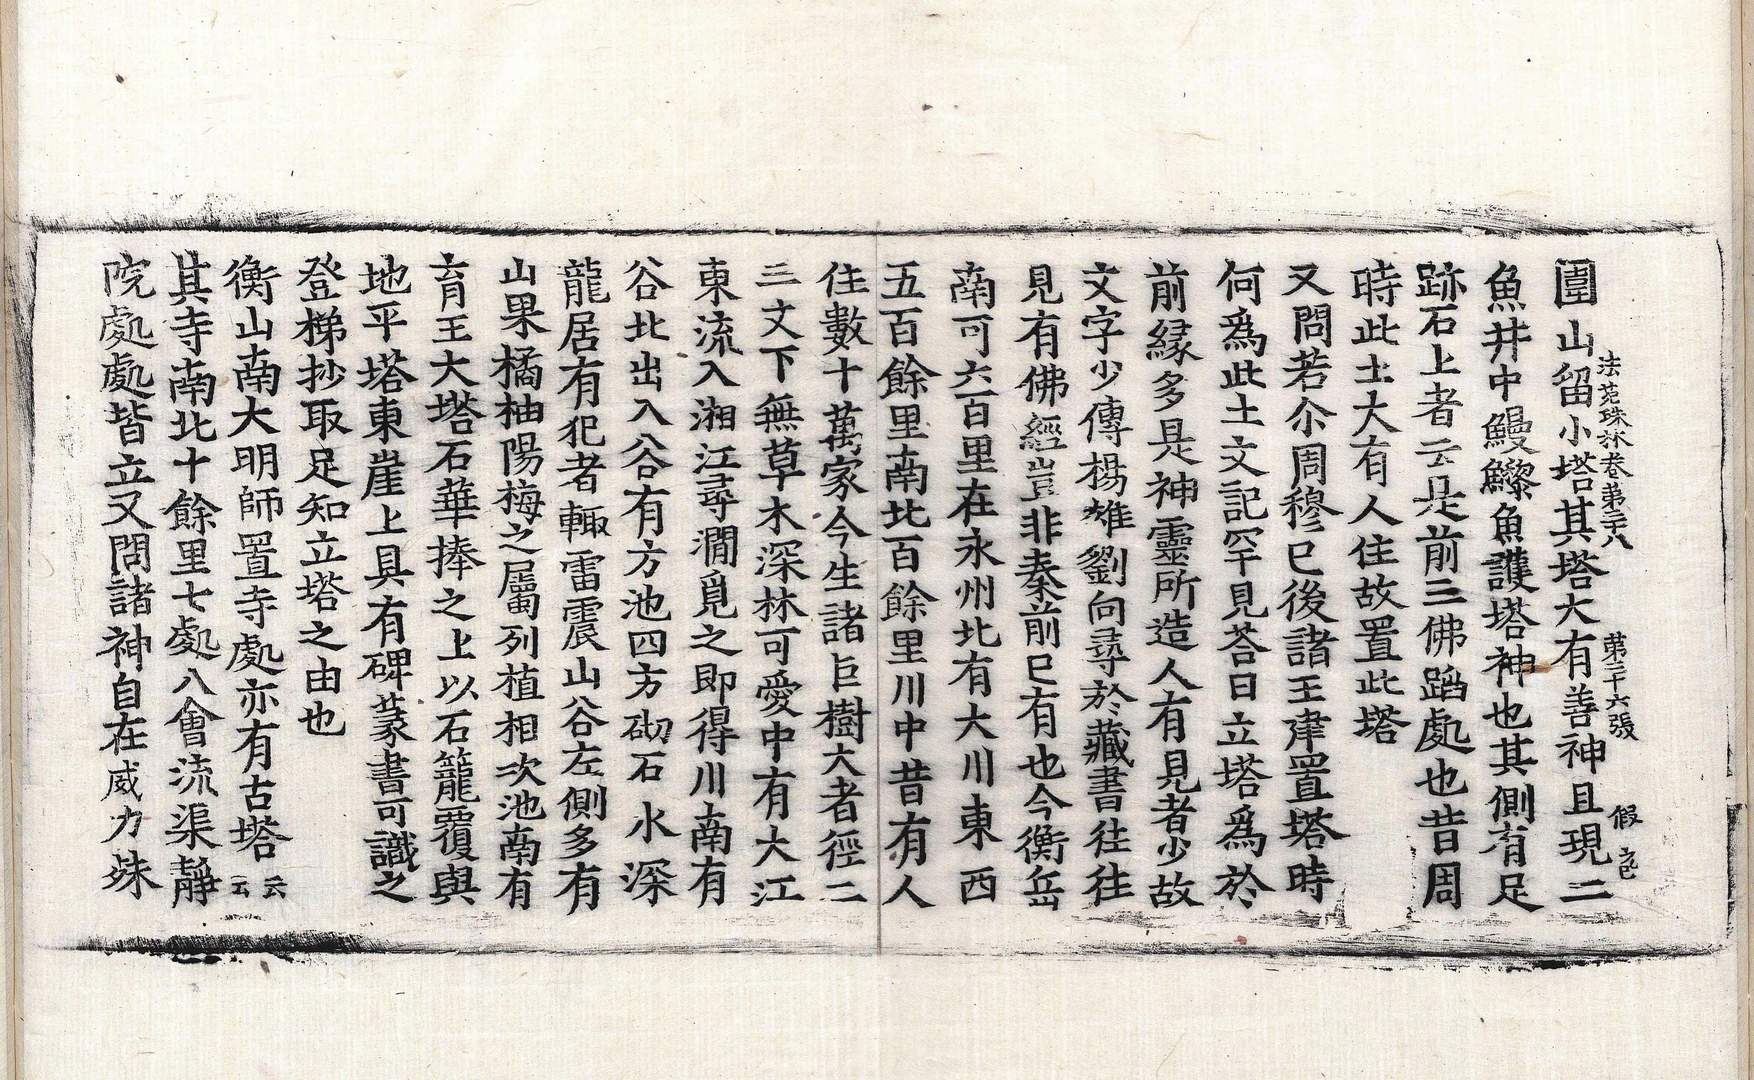 圊山留小塔其塔大有善神且現二
法苑珠林卷第三十八　第三十六張　假
魚井中鰻鱺魚護塔神也其側有足
跡石上者云是前三佛蹈處也昔周
時此土大有人住故置此塔
又問若尒周穆已後諸王建置塔時
何爲此土文記罕見荅曰立塔爲於
前緣多是神靈所造人有見者少故
文字少傳楊雄劉向尋於藏書往往
見有佛經豈非秦前已有也今衡岳
南可六百里在永州北有大川東西
五百餘里南北百餘里川中昔有人
住數十萬家今生諸巨樹大者徑二
三丈下無草木深林可愛中有大江
東流入湘江尋澗覓之即得川南有
谷北出入谷有方池四方砌石水深
龍居有犯者輙雷震山谷左側多有
山果橘柚陽梅之屬列植相次池南有
育王大塔石華捧之上以石籠覆與
地平塔東崖上具有碑篆書可識之
登梯抄取足知立塔之由也
衡山南大明師置寺處亦有古塔云云
其寺南北十餘里七處八會流渠靜
院處處皆立又問諸神自在威力殊